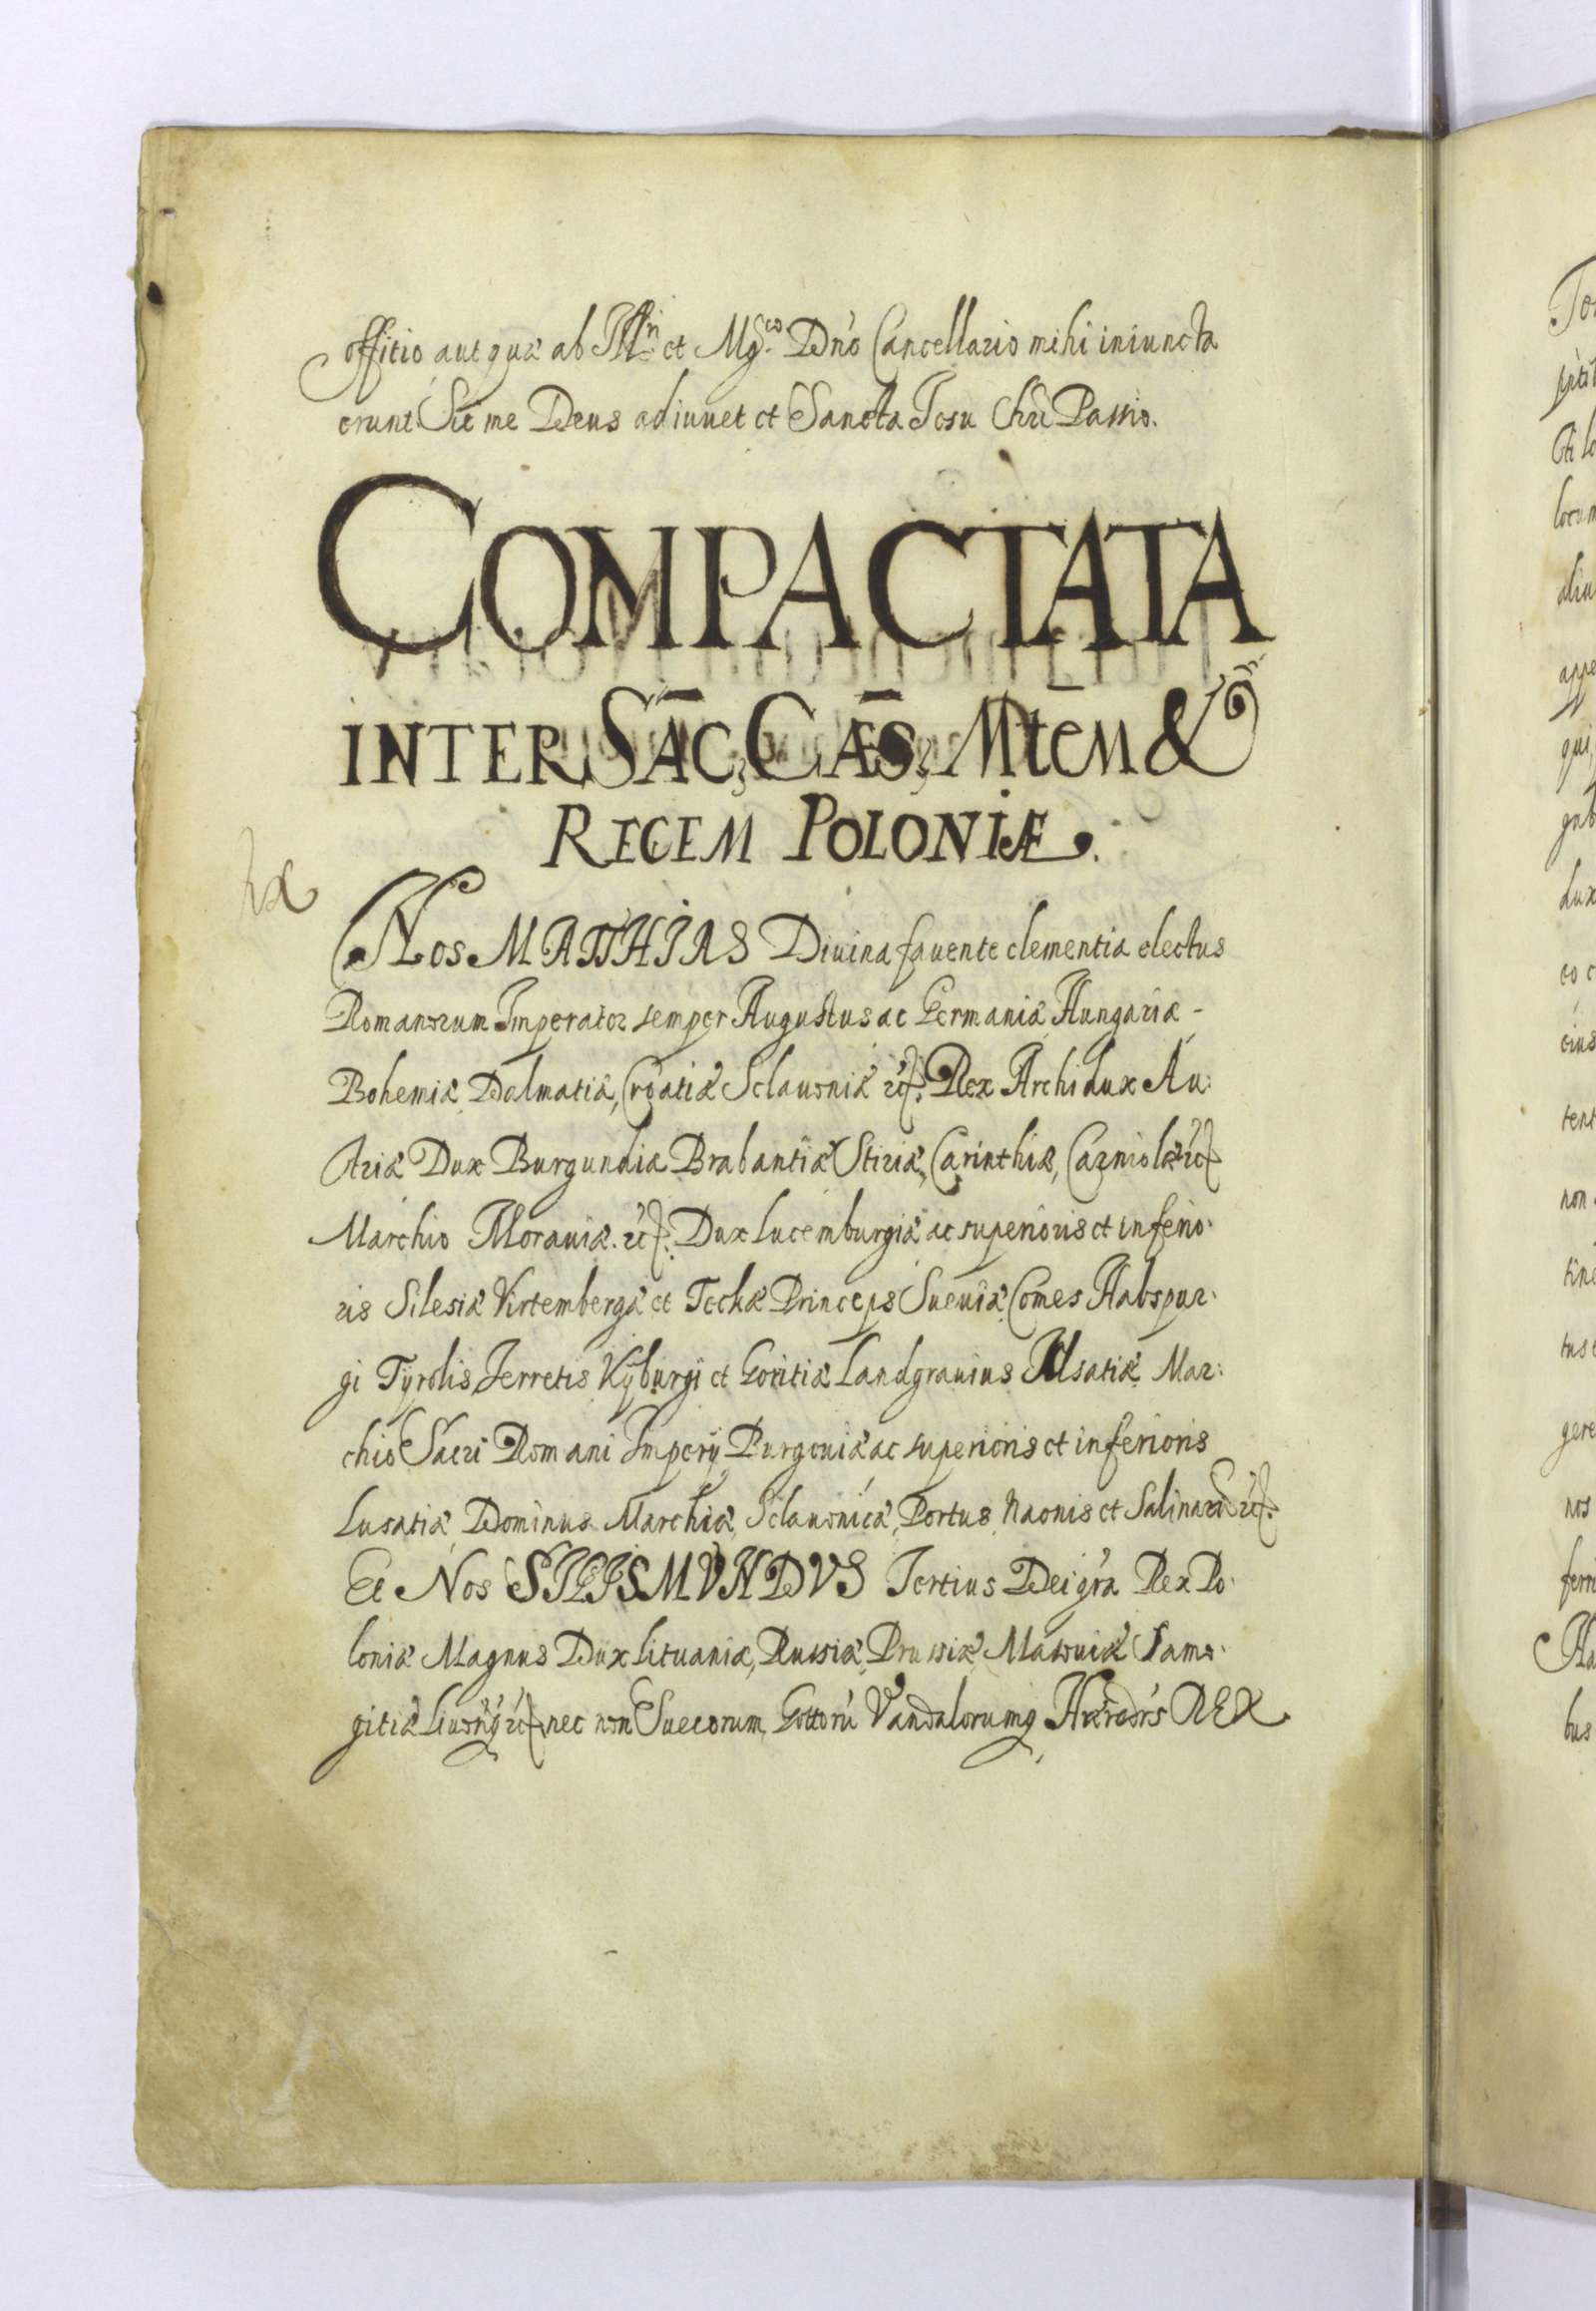 offitio aut quæ ab Illri et Mgco. Dn̄o Cancellario mihi iniuncta
erunt Sic me Deus adiuuet et Sancta Iesu Chri Passio.
COMPACTATA
INTER SĀC, CǢS, MtēM &
REGEM POLONIÆ.
Nos MATTHIAS Diuina fauente clementia electus
Romanorum Imperator semper Augustus ac Germaniæ Hungariæ -
Bohemiæ, Dalmatiæ, Croatiæ Sclauoniæ etc. Rex Archidux Au:
striæ Dux Burgundiæ Brabantiæ Stiriæ, Carinthiæ, Carniolæ etc
Marchio Morauiæ. etc. Dux Lucemburgiæ ac superioris et inferio:
ris Silesiæ Virtembergæ et Teckæ Princeps Sueuiæ Comes Habspur:
gi Tyrolis Ferretis Kÿburgi et Goritiæ Landgrauius Alsatiæ Mar:
chio Sacri Romani Imperÿ Burgouiæ ac superioris et inferioris
Lusatiæ Dominus Marchiæ Sclauonicæ, Portus Naonis et Salinarū etc.
Et Nos SIGISMVNDVS Tertius Dei gr̄a Rex Po:
loniæ Magnus Dux Lituaniæ, Russiæ, Prussiæ Massouiæ Samo:
gitiæ Liuoniæq etc. nec non Suecorum Gottorū Vandalorumq Hæredrs REX